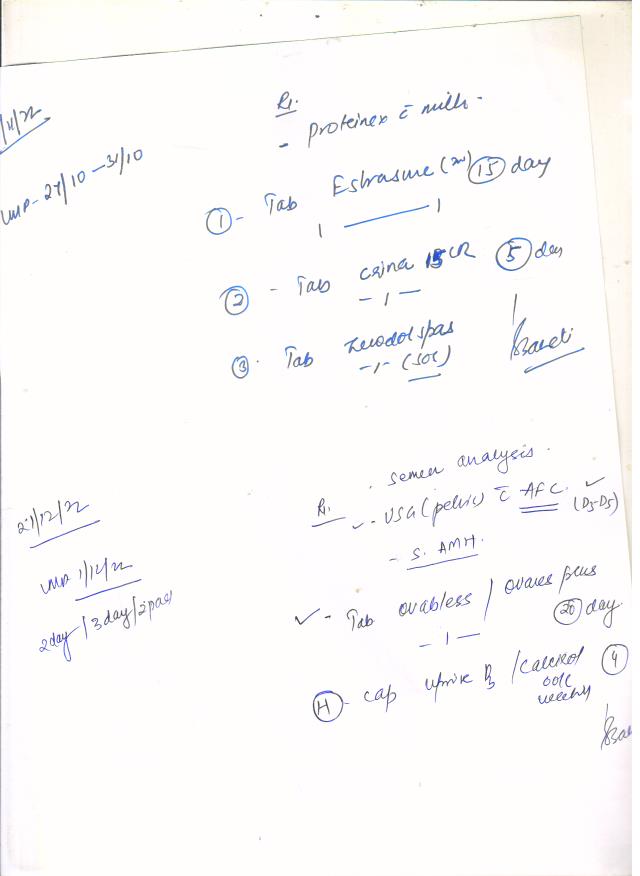 /11/22
LMP - 27/10 - 31/10
Rx.
- Proteinex c̄ milk -
① - Tab Estrasure (2m) ⑮ day
1 — 1
② - Tab Crina 15 CR ⑤ day
- 1 -
③ · Tab Zerodol spas
- 1 - (SOS)
21/12/22
LMP 1/12/22
2day / 3day / 2pad
Rx. · semen analysis .
✓ - USG (pelvic) c̄ AFC. ✓ (D3-D5)
- S. AMH.
✓ - Tab ovabless / ovares plus
- 1 - ⑳ day
Ⓗ - cap uprise D3 / calcirol ④
weekly